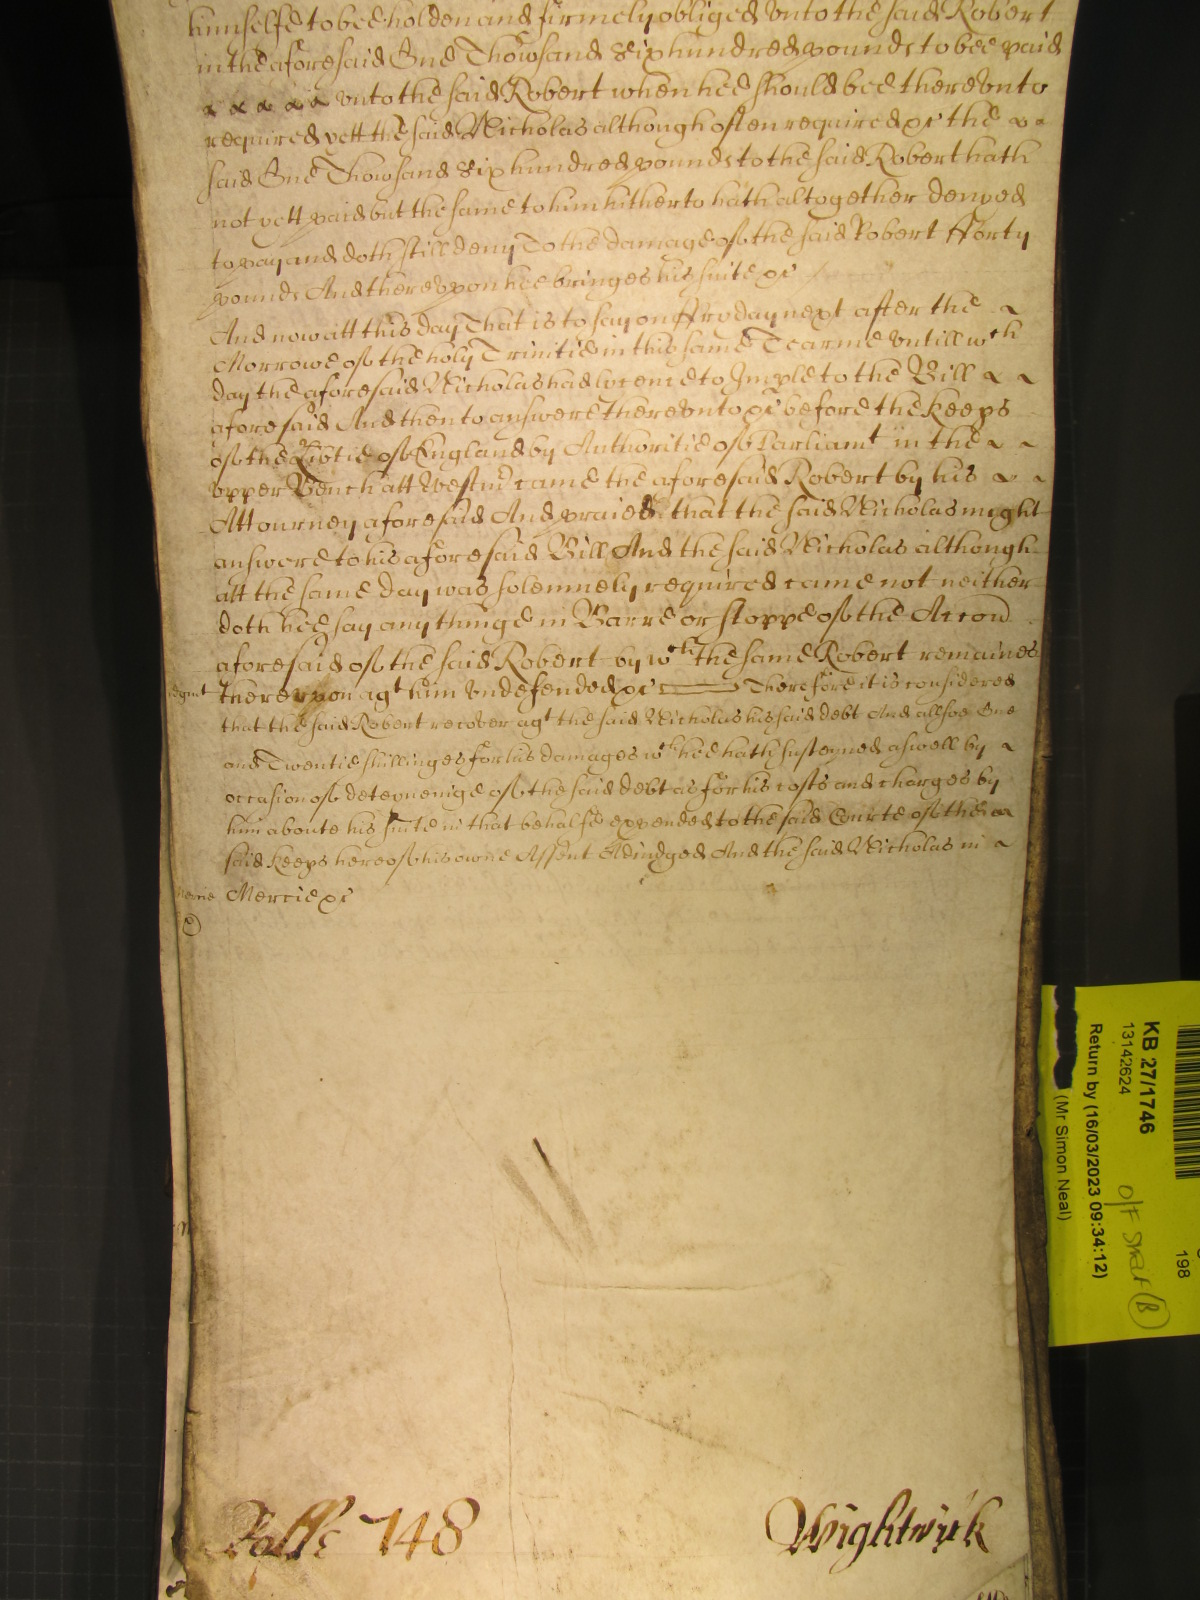 himselfe to bee holden and firmely obliged vnto the said Robert
in the aforesaid One Thowsand Six hundred pounds to bee paid
vnto the said Robert when hee should bee therevnto
required yett the said Nicholas although often required &c the
said One Thowsand Six hundred pounds to the said Robert hath
not yett paid but the same to him hitherto hath altogether denyed
to pay and doth still deny To the damage of the said Robert fforty
pounds And therevpon hee bringes his suite &c
And now att this day That is to say on ffryday next after the
Morrowe of the holy Trinitie in this same Tearme vntill wch
day the aforesaid Nicholas had lycence to Imple to the Bill
aforesaid And then to answere therevnto &c before the Keeps
of the Libtie of England by Authoritie of Parliamt in the
vpper Bench att Westm came the aforesaid Robert by his
Attourney aforesaid And praied that the said Nicholas might
answere to his aforesaid Bill And the said Nicholas although
att the same day was solemnely required came not neither
doth hee say any thinge in Barre or stoppe of the Accon
aforesaid of the said Robert by wch the same Robert remaines
therevpon agt him vndefended &c Therefore it is considered
that the said Robert recover agt the said Nicholas his said debt And allsoe One
and Twentie shillinges for his damages wch hee hath susteyned aswell by
occasion of deteyneinge of the said debt as for his costs and charges by
him aboute his suite in that behalfe expended to the said Courte of the
said Keeps here of his owne Assent Adiudged And the said Nicholas in
Mercie &c
KB 27/1746
13142624
Return by (16/03/2023 09:34:12)
(Mr Simon Neal)
O/F Shelf (B)
198
Rolle 748
Wightwick